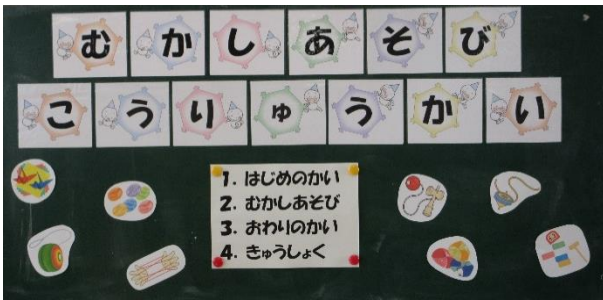 むかしあそび
こうりゅうかい
1. はじめのかい
2. むかしあそび
3. おわりのかい
4. きゅうしょく